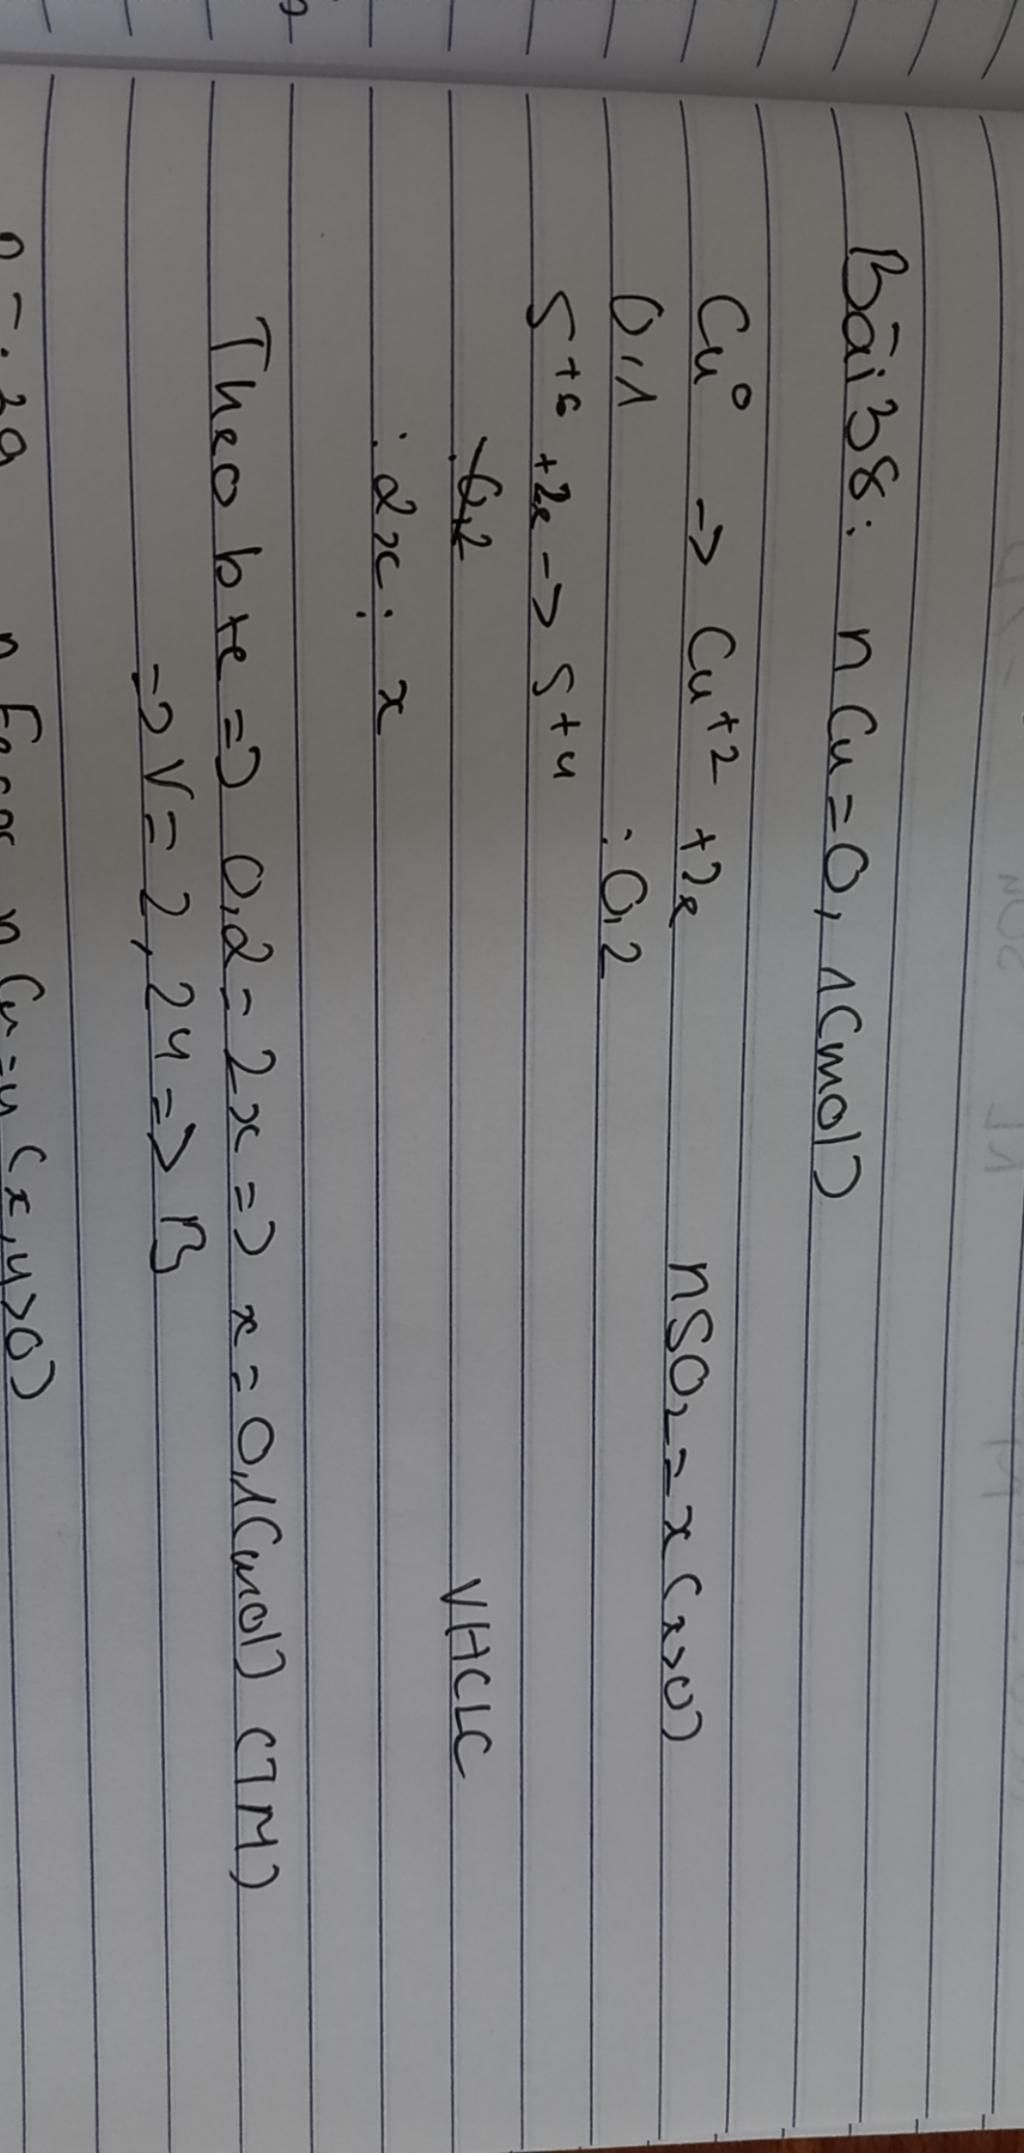 Bài 38: nCu = 0,1 (mol)
Cu⁰ -> Cu⁺² +2e nSO₂ = x (x>0)
0,1 : 0,2
S⁺⁶ +2e -> S⁺⁴
VHCLC
: 2x : x
Theo bte => 0,2 = 2x => x = 0,1 (mol) (TM)
=> V = 2,24 => B
n Cu = y (x,y>0)